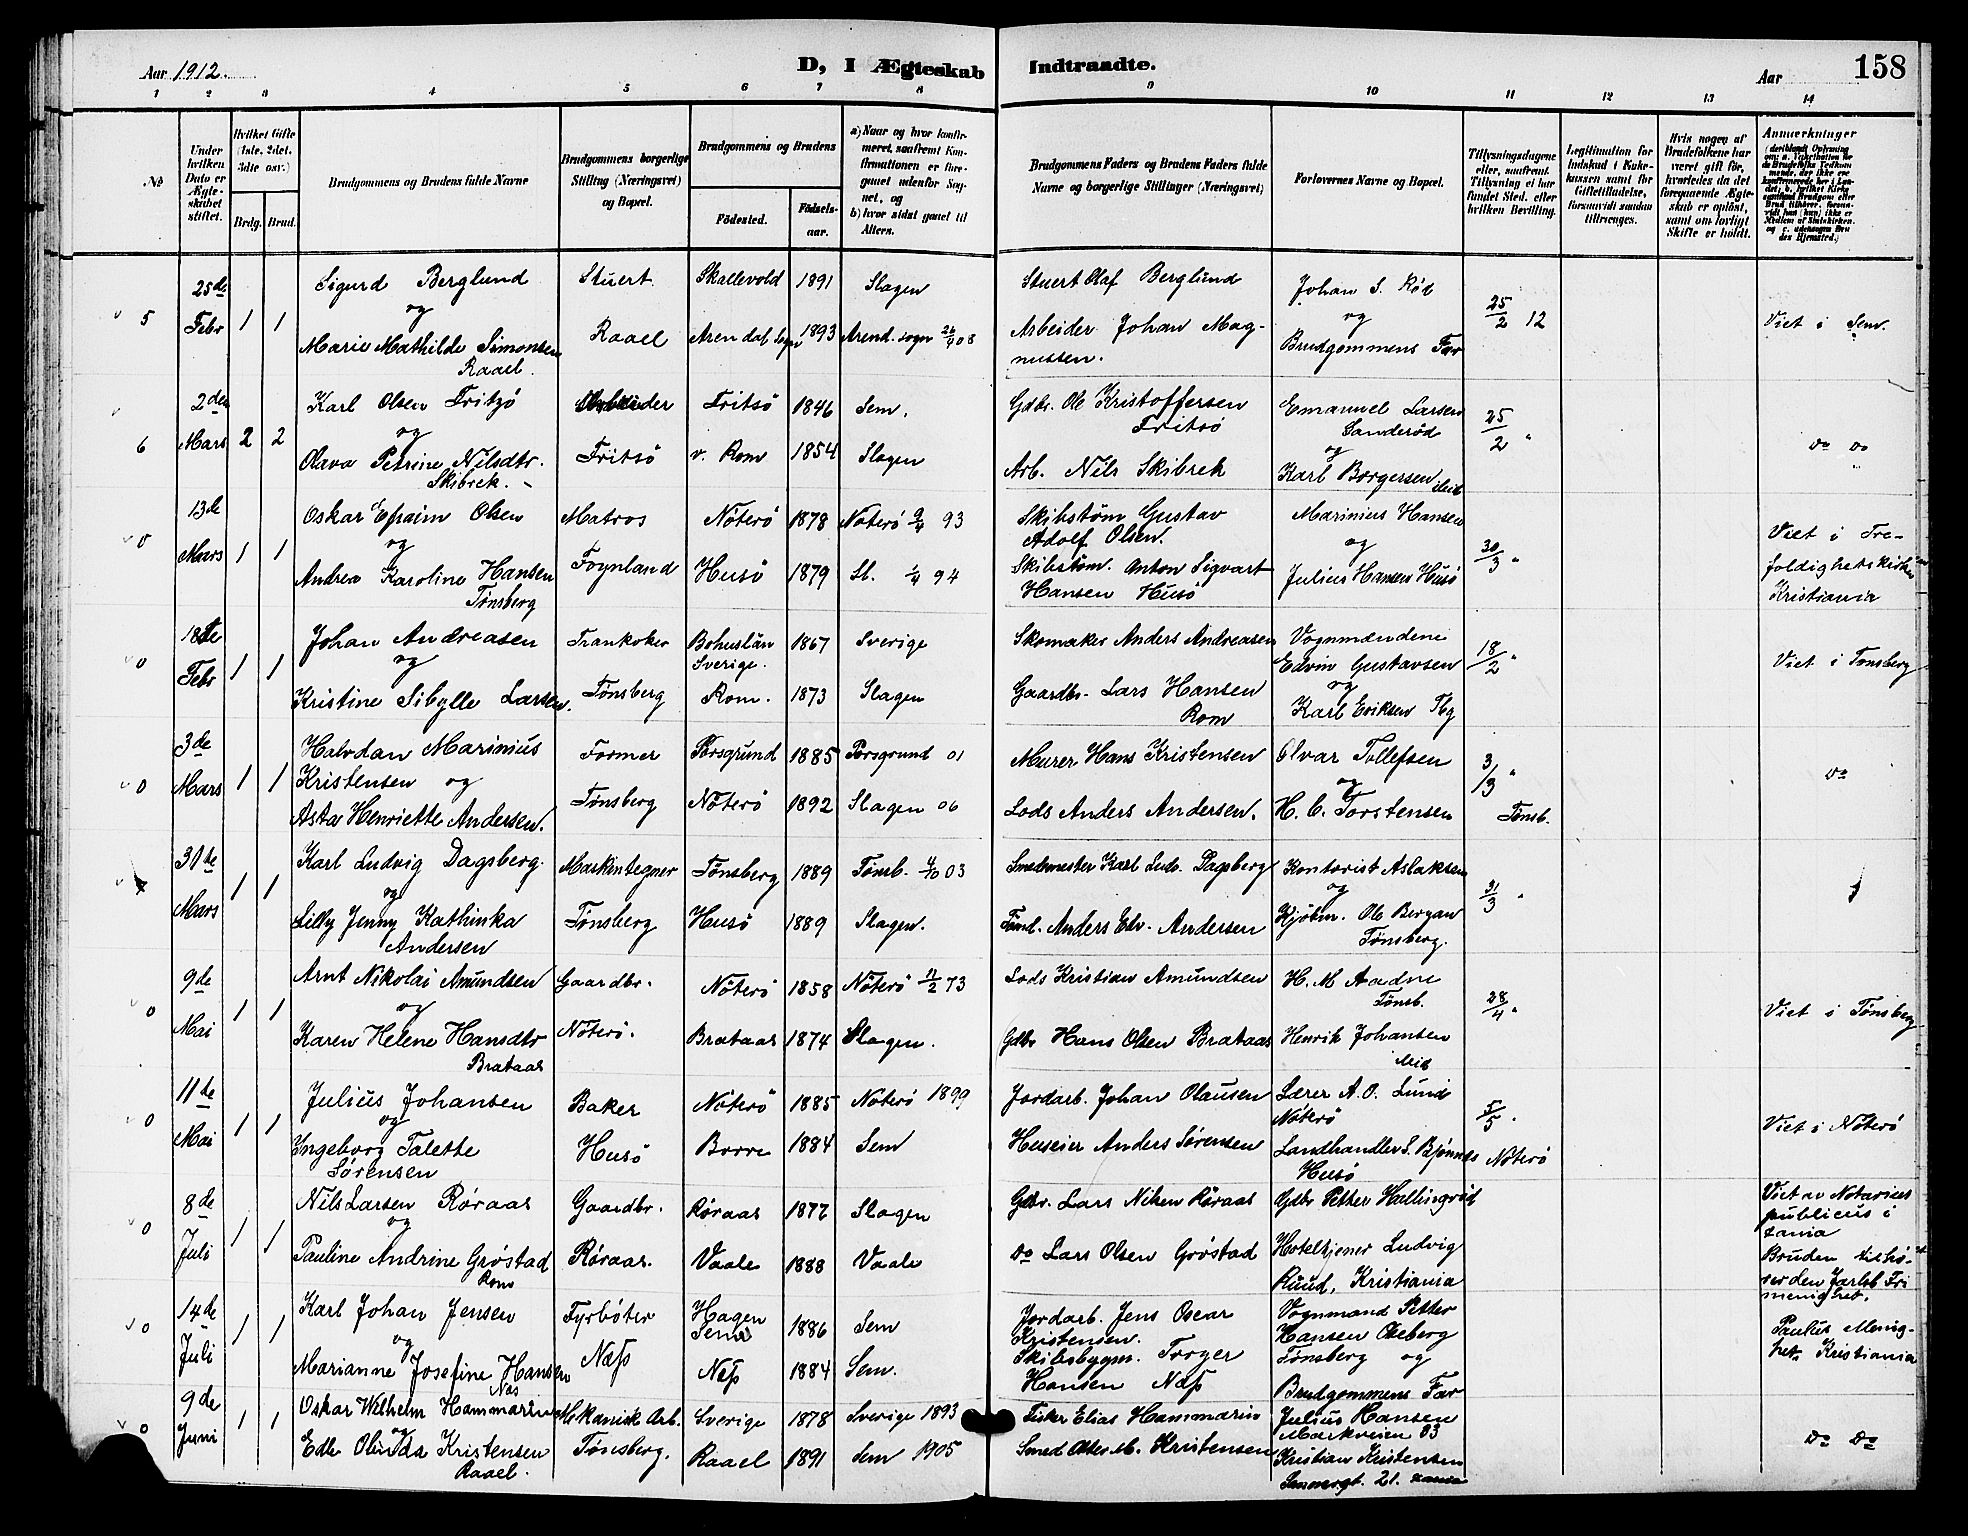 Aar 1912.
D, I Ægteskab Indtraadte.
Aar
158
1 2 3 4 5 6 7 8 9 10 11 12 13 14
No.
Under hvilken Dato er Ægteskabet stiftet.
Hvilket Gifte (1ste, 2det, 3die osv.)
Brdg. Brud.
Brudgommens og Brudens fulde Navne
Brudgommens borgerlige Stilling (Næringsvei) og Bopæl.
Brudgommens og Brudens
Fødested.
Fødselsaar.
a) Naar og hvor konfirmeret, saafremt Konfirmationen er foregaaet udenfor Sognet, og
b) hvor sidst gaaet til Alters.
Brudgommens Faders og Brudens Faders fulde Navne og borgerlige Stillinger (Næringsvei)
Forlovernes Navne og Bopæl.
Tillysningsdagene eller, saafremt Tillysning ei har fundet Sted, efter hvilken Bevilling.
Legitimation for Indskud i Enkekassen samt for Giftetilladelse, forsaavidt saadan tiltrænges.
Hvis nogen af Brudefolkene har været gift før, hvorledes da det foregaaende Ægteskab er opløst, samt om lovligt Skifte er holdt.
Anmærkninger
25de Sigurd Berglund Stuert Skallevold 1891 Slagen Stuert Olaf Berglund Johan S. Rød
5 Febr 1 1 og 25/2 12 Viet i Sem.
Marie Mathilde Simonsen Raael Arendal Sogn 1893 Arend. sogn 26/4 08 Arbeider Johan Mag- og
Raael. nussen. Brudgommens Far
2den Karl Olsen Fritzö Arbeider Fritsö 1846 Sem. Gdbr. Ole Kristoffersen Emanuel Larsen
6 Mars 2 2 og Fritsö Sanderød 25/2 " do do
Olava Petrine Nilsdtr. Fritsö v. Rom 1854 Slagen Arb. Nils Skibrek og
Skibrek. Karl Borgersen ibid
13de Oskar Efraim Olsen Matros Nöterö 1878 Nöterö 9/4 93 Skibstöm Gustav Marinius Hansen
0 Mars 1 1 og Adolf Olsen. og 30/3 " Viet i Tre-
Andrea Karoline Hansen Foynland Husö 1879 Sl. 1/4 94 Skibstöm. Anton Sigvart Julius Hansen Husö foldighetskirken
Tønsberg Hansen Husö Kristiania
18de Johan Andreasen Trankoker Bohuslän 1867 Sverige Skomaker Anders Andreasen Vognmændene
0 Febr 1 1 og Sverige. Edvin Gustavsen 18/2 " Viet i Tønsberg
Kristine Sibylle Larsen. Tønsberg Rom. 1873 Slagen Gaardbr. Lars Hansen og
Rom Karl Eriksen Tbg
3de Halvdan Marinius Former Porsgrund 1885 Porsgrund 01 Murer Hans Kristensen Olvar Tollefsen 3/3 "
0 Mars 1 1 Kristensen og og do
Asta Henriette Andersen. Tønsberg Nöterö 1892 Slagen 06 Lods Anders Andersen. H. C. Torstensen Tønsb.
31de Karl Ludvig Dagsberg. Maskintegner Tønsberg 1889 Tønsb. 4/10 03 Smedmester Karl Ludv. Dagsberg Kontorist Aslaksen
Mars 1 1 og og 31/3 "
Lilly Jenny Kathinka Tønsberg Husö 1889 Slagen. Anders Edv. Andersen Kjöbm. Ole Bergan
Andersen Tønsberg.
9de Arnt Nikolai Amundsen Gaardbr. Nöterö 1858 Nöterö 11/2 73 Lods Kristian Amundsen H. M Aadne
0 Mai 1 1 og Tønsb. 28/4 " Viet i Tønsberg
Karen Helene Hansdtr Nöterö. Brataas 1874 Slagen. Gdbr Hans Olsen Brataas Henrik Johansen
Brataas ibid
11de Julius Johansen Baker Nöterö 1885 Nöterö 1899 Jordarb. Johan Olausen Lærer A. O. Lund
0 Mai 1 1 og Nöterö 5/5 " Viet i Nöterö
Ingeborg Talette Husö Borre 1884 Sem Huseier Anders Sørensen Landhandler S. Bjønnes Nöterö
Sørensen Husö
8de Nils Larsen Røraas Gaardbr. Røraas 1877 Slagen Gdbr. Lars Nilsen Røraas Gdbr Petter Hallingröd Viet av Notarius
0 Juli 1 1 og publicus i
Pauline Andrine Grøstad Røraas. Vaale 1888 Vaale do Lars Olsen Grøstad Hoteltjener Ludvig Xania
Rom Ruud, Kristiania Bruden tilhö-
rer den Jarlsb. Fri
menighet.
14de Karl Johan Jensen Fyrböter Hagen 1886 Sem Jordarb. Jens Oscar Vognmand Petter
0 Juli 1 1 og Sem Kristensen. Hansen Okeberg Paulus Menig-
Marianne Josefine Hansen Næss Næss 1884 Sem. Skibsbygm. Torger Tønsberg og het Kristiania
Næs Hansen Næss Brudgommens Far
9de Oskar Wilhelm Hammarin Mekanisk Arb. Sverige 1878 Sverige 1893 Fisker Elias Hammarin Julius Hansen
0 Juni 1 1 og Markveien 53
Edle Olinda Kristensen Tønsberg. Raael 1891 Sem 1905 Smed M. Kristensen Kristian Kristensen Do Do
Raael. 21. Xania